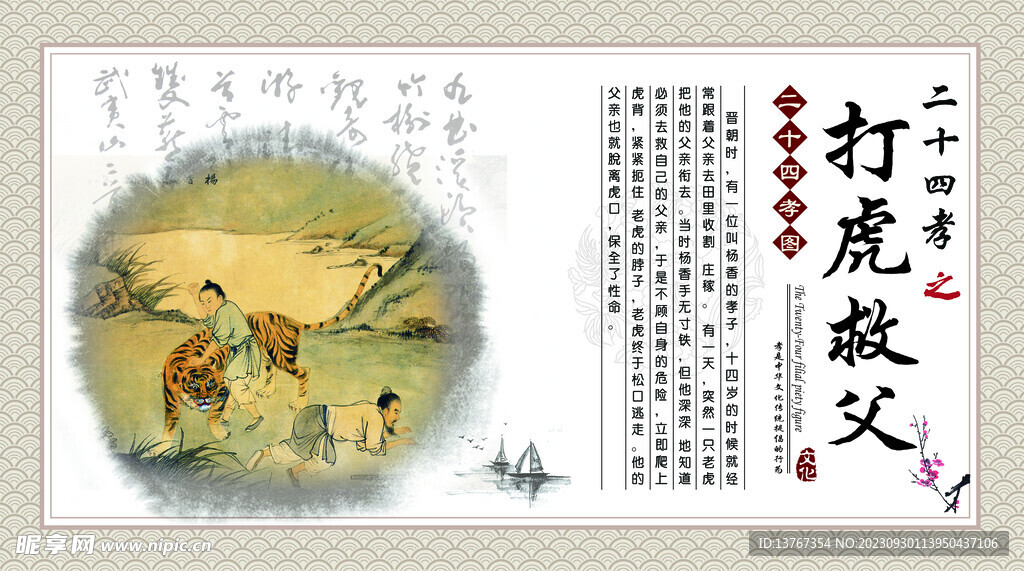 二十四孝之
打虎救父
二十四孝图
The Twenty-Four filial piety figure
孝是中华文化传统提倡的行为
文化
晋朝时，有一位叫杨香的孝子，十四岁的时候就经
常跟着父亲去田里收割 庄稼。有一天，突然一只老虎
把他的父亲衔去。当时杨香手无寸铁，但他深深 地知道
必须去救自己的父亲，于是不顾自身的危险，立即爬上
虎背，紧紧扼住 老虎的脖子，老虎终于松口逃走。他的
父亲也就脱离虎口，保全了性命。
武夷山
杨
昵享网 www.nipic.cn
ID:13767354 NO:20230930113950437106